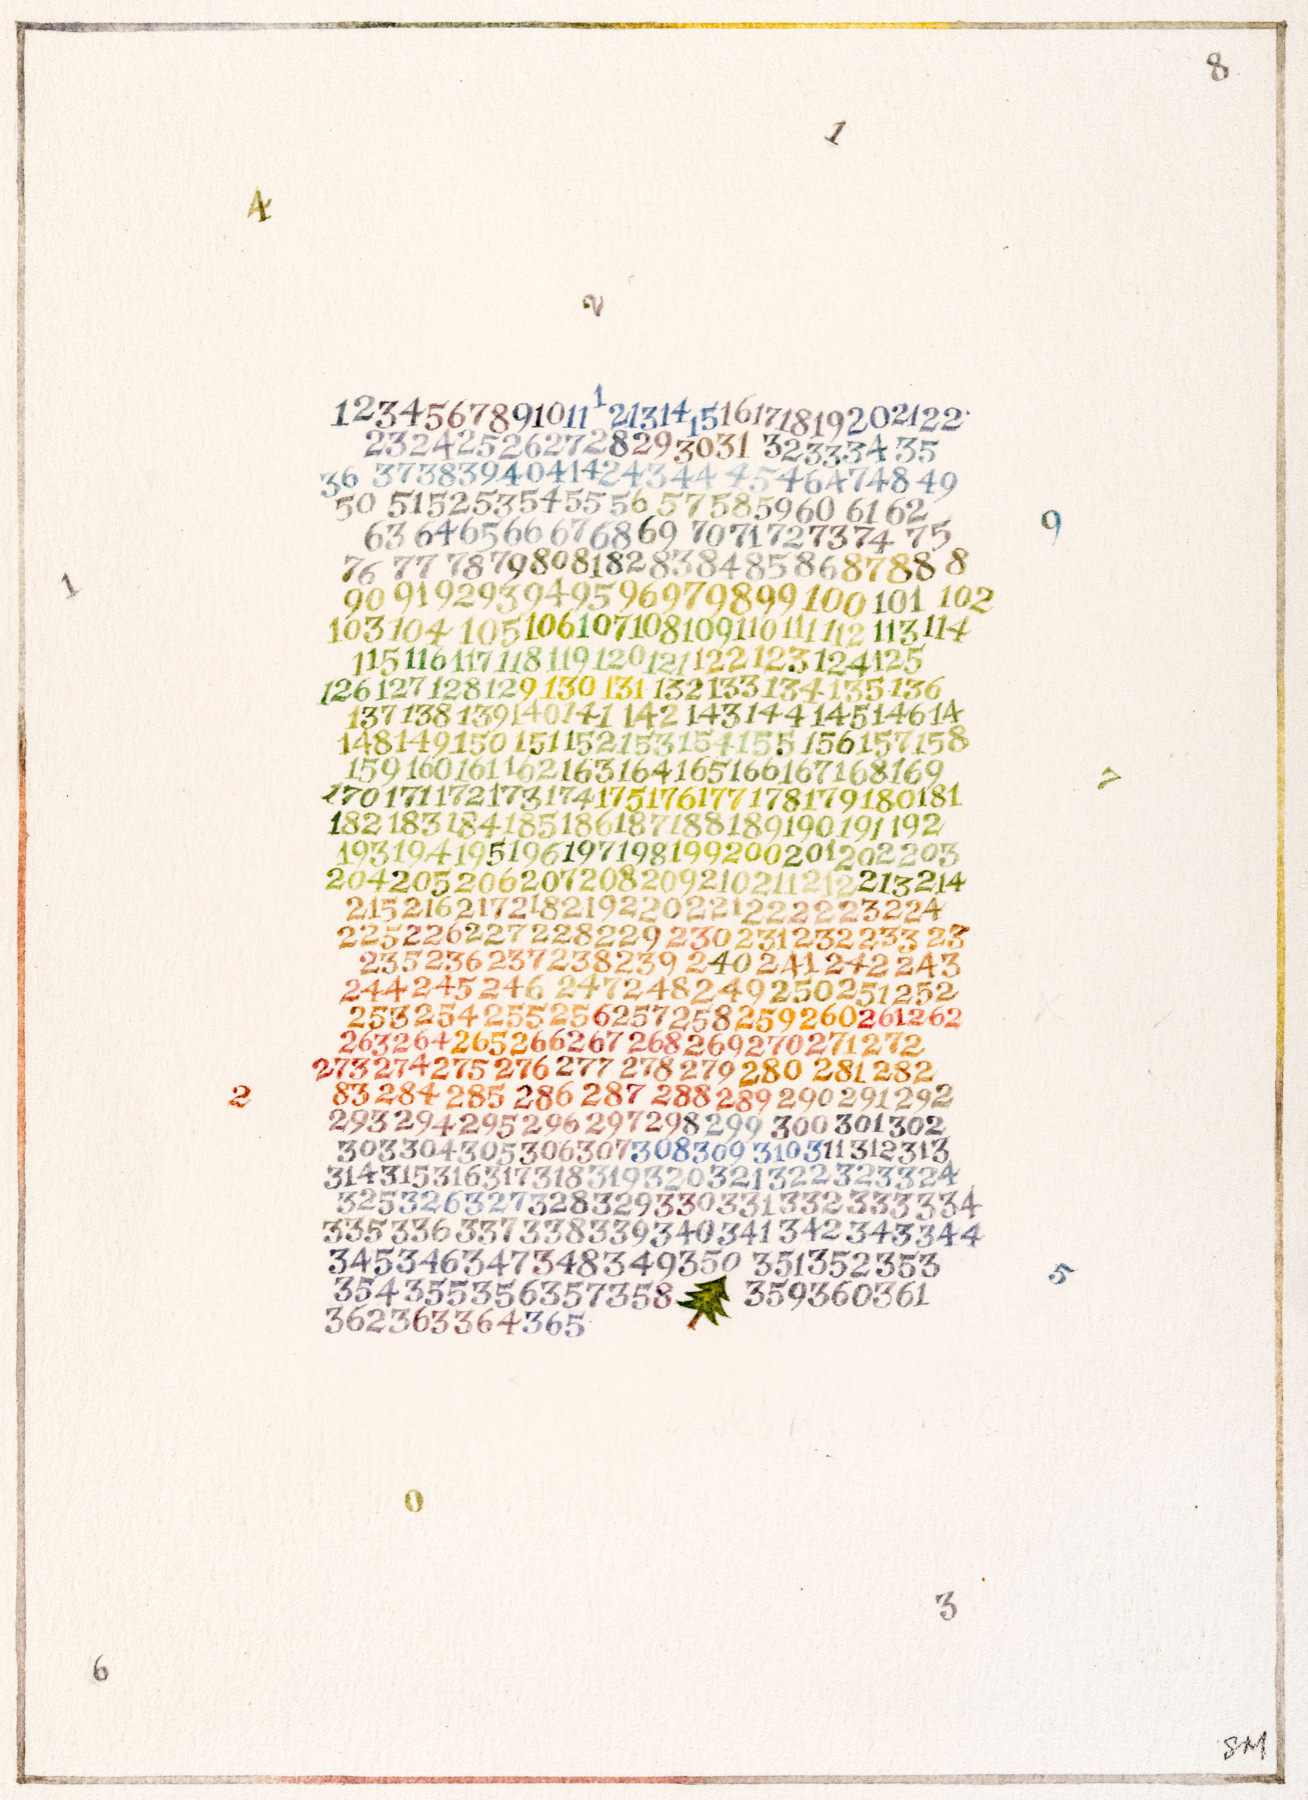 8
1
4
2
12345678910111213141516171819202122
23242526272829303132333435
36 373839404142434445464748 49
50 51525354555657585960 6162
63 64656667686970717273 74 75
76 77 78 798081828384858687888
9091929394959697989910010 1102
103104105106107108109110111112113114
115116117118119120121122123124125
126127128129130131132133134135136
13713813914014114214314414514614
148149150151152153154155156157158
159160161162163164165166167168169
170171172173174175176177178179180181
182183184185186187188189190191192
193194195196197198199200201202203
204205206207208209210211212213214
215216217218219220221222223224
22522622722822923023123223323
235236237238239240241242243
244245246247248249250251252
253254255256257258259260261262
263264265266267268269270271272
273274275276277278279280281282
83284285286287288289290291292
293294295296297298299300301302
303304305306307308309310311312313
314315316317318319320321322323324
325326327328329330331332333334
335336337338339340341342343344
345346347348349350351352353
354355356357358 359360361
362363364365
9
1
7
2
5
0
3
6
SM